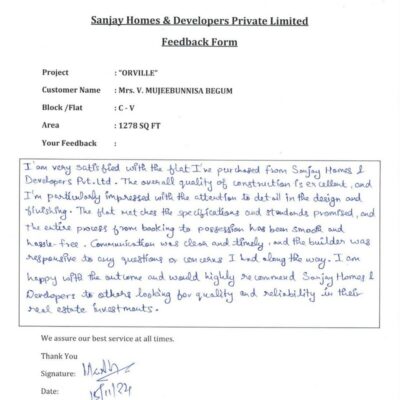 Sanjay Homes & Developers Private Limited
Feedback Form
Project : "ORVILLE"
Customer Name : Mrs. V. MUJEEBUNNISA BEGUM
Block /Flat : C - V
Area : 1278 SQ FT
Your Feedback :
I'am very satisfied with the flat I've purchased from Sanjay Homes &
Developers Pvt.Ltd. The overall quality of construction is excellent, and
I'm particularly impressed with the attention to detail in the design and
finishing. The flat matches the specifications and standards promised, and
the entire process from booking to possession has been smooth and
hassle-free. Communication was clear and timely, and the builder was
responsive to any questions or concerns I had along the way. I am
happy with the outcome and would highly recommend Sanjay Homes &
Developers to others looking for quality and reliability in their
real estate investments.
We assure our best service at all times.
Thank You
Signature:
Date: 15/11/24